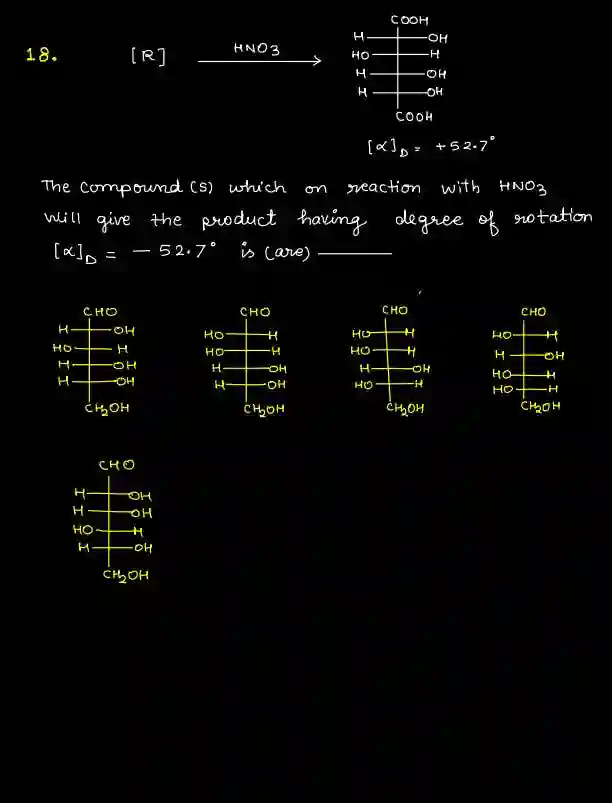 18. [R] HNO3
COOH
H OH
HO H
H OH
H OH
COOH
[α]D = +52.7°
The compound (s) which on reaction with HNO3
will give the product having degree of rotation
[α]D = - 52.7° is (are) ______
CHO CHO CHO CHO
H OH HO H HO H HO H
HO H HO H HO H H OH
H OH H OH H OH HO H
H OH H OH HO H HO H
CH2OH CH2OH CH2OH CH2OH
CHO
H OH
H OH
HO H
H OH
CH2OH